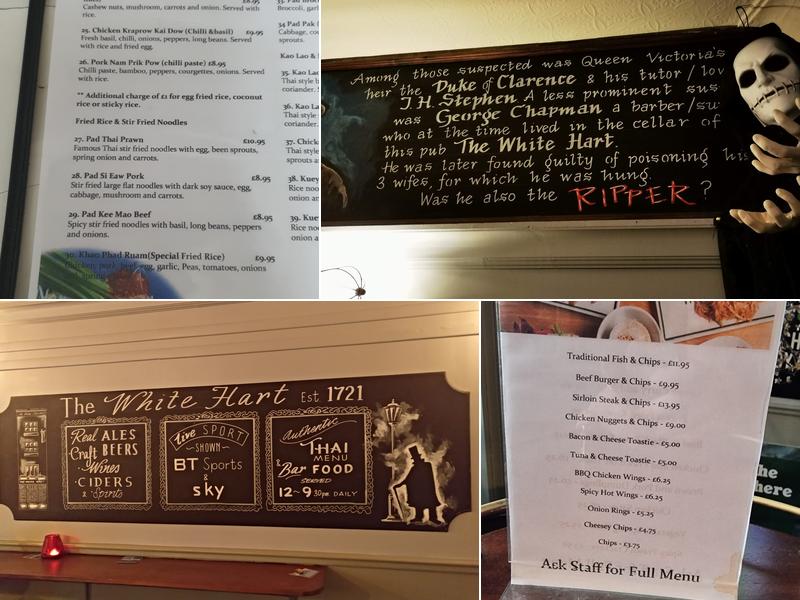 £8.95
Cashew nuts, mushroom, carrots and onion. Served with
rice.
25. Chicken Kraprow Kai Dow (Chilli &basil) £9.95
Fresh basil, chilli, onions, peppers, long beans. Served
with rice and fried egg.
26. Pork Nam Prik Pow (chilli paste) £8.95
Chilli paste, bamboo, peppers, courgettes, onions. Served
with rice.
** Additional charge of £1 for egg fried rice, coconut
rice or sticky rice.
Fried Rice & Stir Fried Noodles
27. Pad Thai Prawn £10.95
Famous Thai stir fried noodles with egg, been sprouts,
spring onion and carrots.
28. Pad Si Eaw Pork £8.95
Stir fried large flat noodles with dark soy sauce, egg,
cabbage, mushroom and carrots.
29. Pad Kee Mao Beef £8.95
Spicy stir fried noodles with basil, long beans, peppers
and onions.
30. Khao Phad Ruam(Special Fried Rice) £9.95
Chicken, pork, beef, egg, garlic, Peas, tomatoes, onions
and spring
Broccoli,
34 Pad Pak (
Cabbage,
sprouts.
Kao Lao &
35. Kao Lao
Thai style
coriander.
36. Kao
Thai style
coriander.
37. Chick
sprouts
38. Kuey
Rice
39. Kue
Rice
onion
Among those suspected was Queen Victoria's
heir the Duke of Clarence & his tutor / lov
J.H. Stephen A less prominent sus
was George Chapman a barber/su
who at the time lived in the cellar of
this pub The White Hart.
He was later found guilty of poisoning his
3 wifes, for which he was hung.
Was he also the RIPPER ?
The White Hart Est 1721
Real ALES
Craft BEERS
Wines
CIDERS
& Spirits
Live SPORT
SHOWN
BT Sports
&
sky
Authentic
THAI
MENU
& Bar FOOD
SERVED
12~9 30pm DAILY
Traditional Fish & Chips - £11.95
Beef Burger & Chips - £9.95
Sirloin Steak & Chips - £13.95
Chicken Nuggets & Chips - £9.00
Bacon & Cheese Toastie - £5.00
Tuna & Cheese Toastie - £5.00
BBQ Chicken Wings - £6.25
Spicy Hot Wings - £6.25
Onion Rings - £5.25
Cheesey Chips - £4.75
Chips - £3.75
Ask Staff for Full Menu
the
here